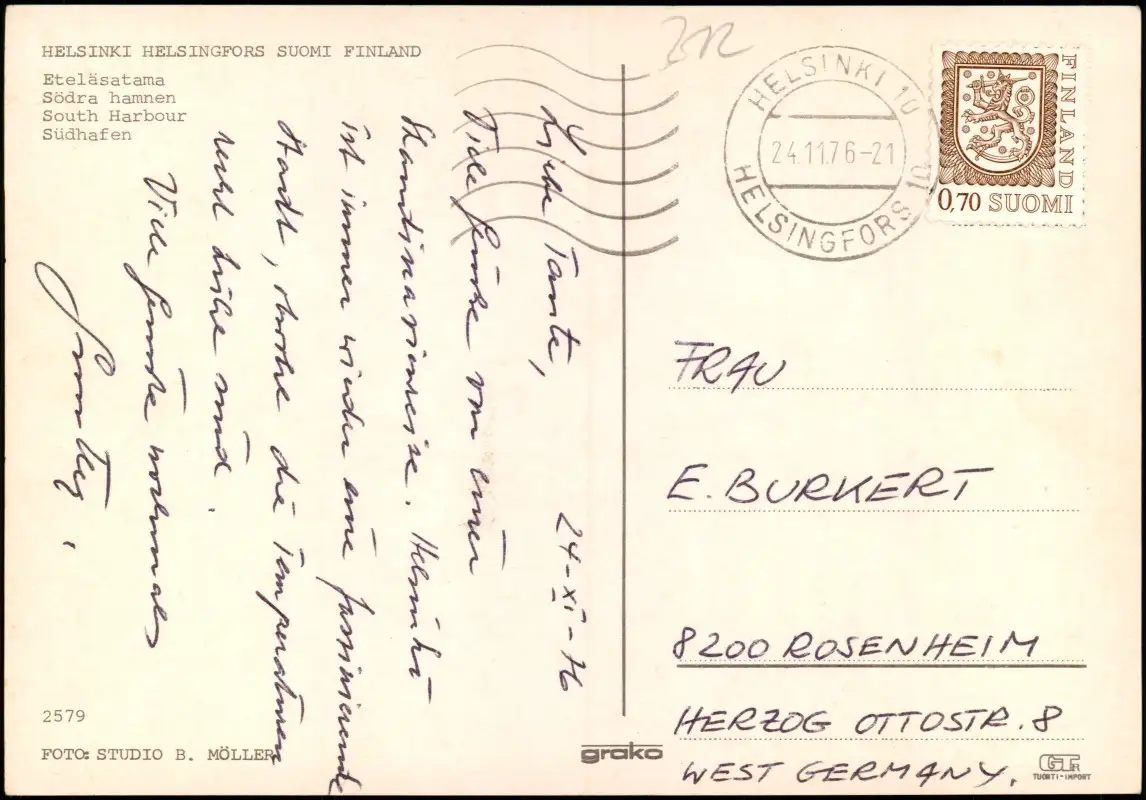 HELSINKI HELSINGFORS SUOMI FINLAND
Eteläsatama
Södra hamnen
South Harbour
Südhafen
Liebe Tante,
24-XI-76
Viele Grüße von einer
Skandinavienreise. Helsinki
ist immer wieder eine faszinierende
Stadt, die Temperaturen
recht kühl sind.
Viele Grüße nochmals
2579
FOTO: STUDIO B. MÖLLER
grako
HELSINKI 10
24.11.76-21
HELSINGFORS 10
FINLAND
0,70 SUOMI
FRAU
E. BURKERT
8200 ROSENHEIM
HERZOG OTTOSTR. 8
WEST GERMANY.
GT
TUORTI-IMPORT